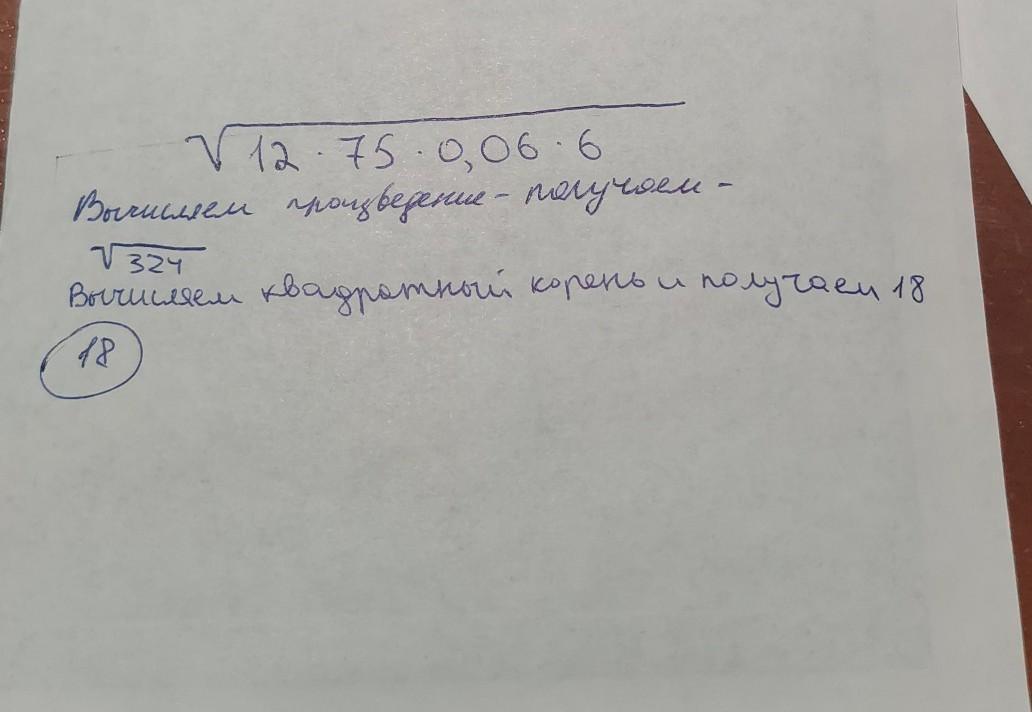 √12 · 75 · 0,06 · 6
Вычисляем произведение - получаем -
√324
Вычисляем квадратный корень и получаем 18
18